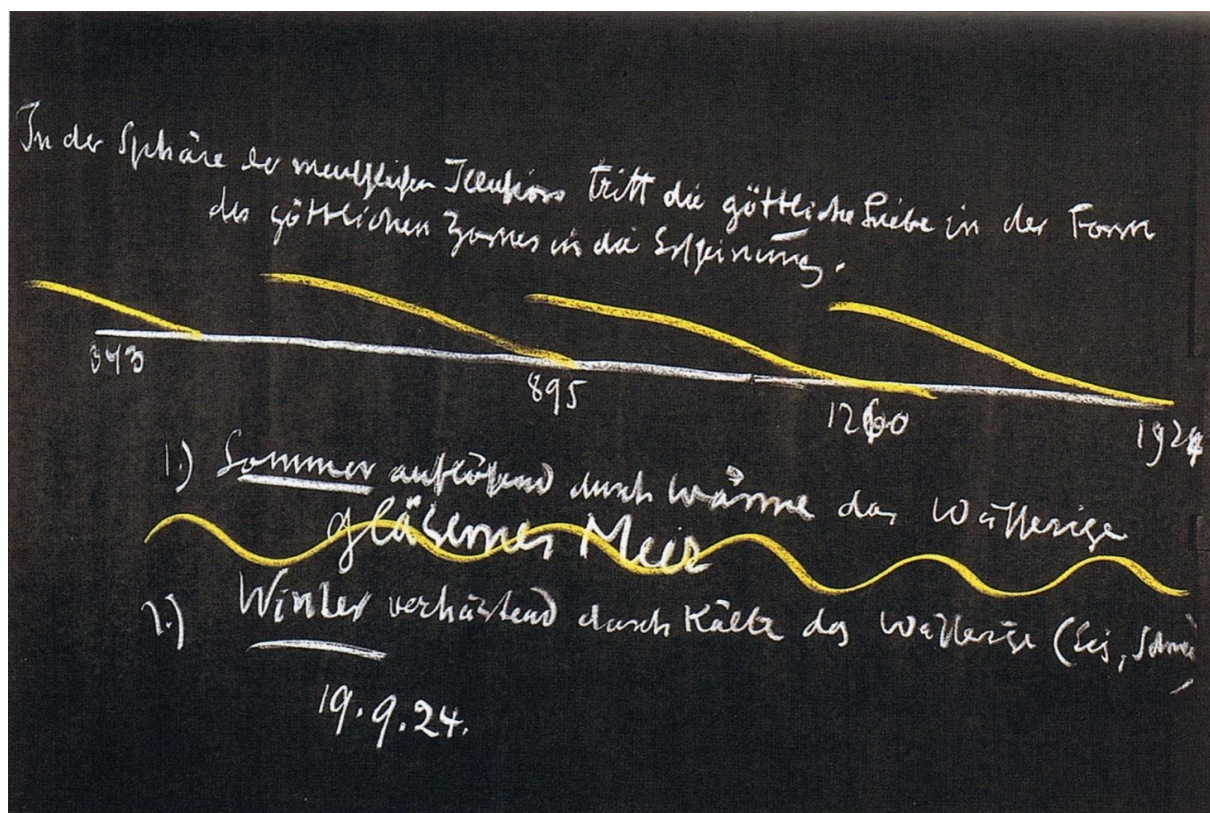 In der Sphäre der menschlichen Illusion tritt die göttliche Liebe in der Form
des göttlichen Zornes in die Erscheinung.
895
1260
1924
1.) Sommer auflösend durch Wärme das Wässerige
gläsernes Meer
2.) Winter verhärtend durch Kälte das Wässerige (Eis, Schnee)
19.9.24.